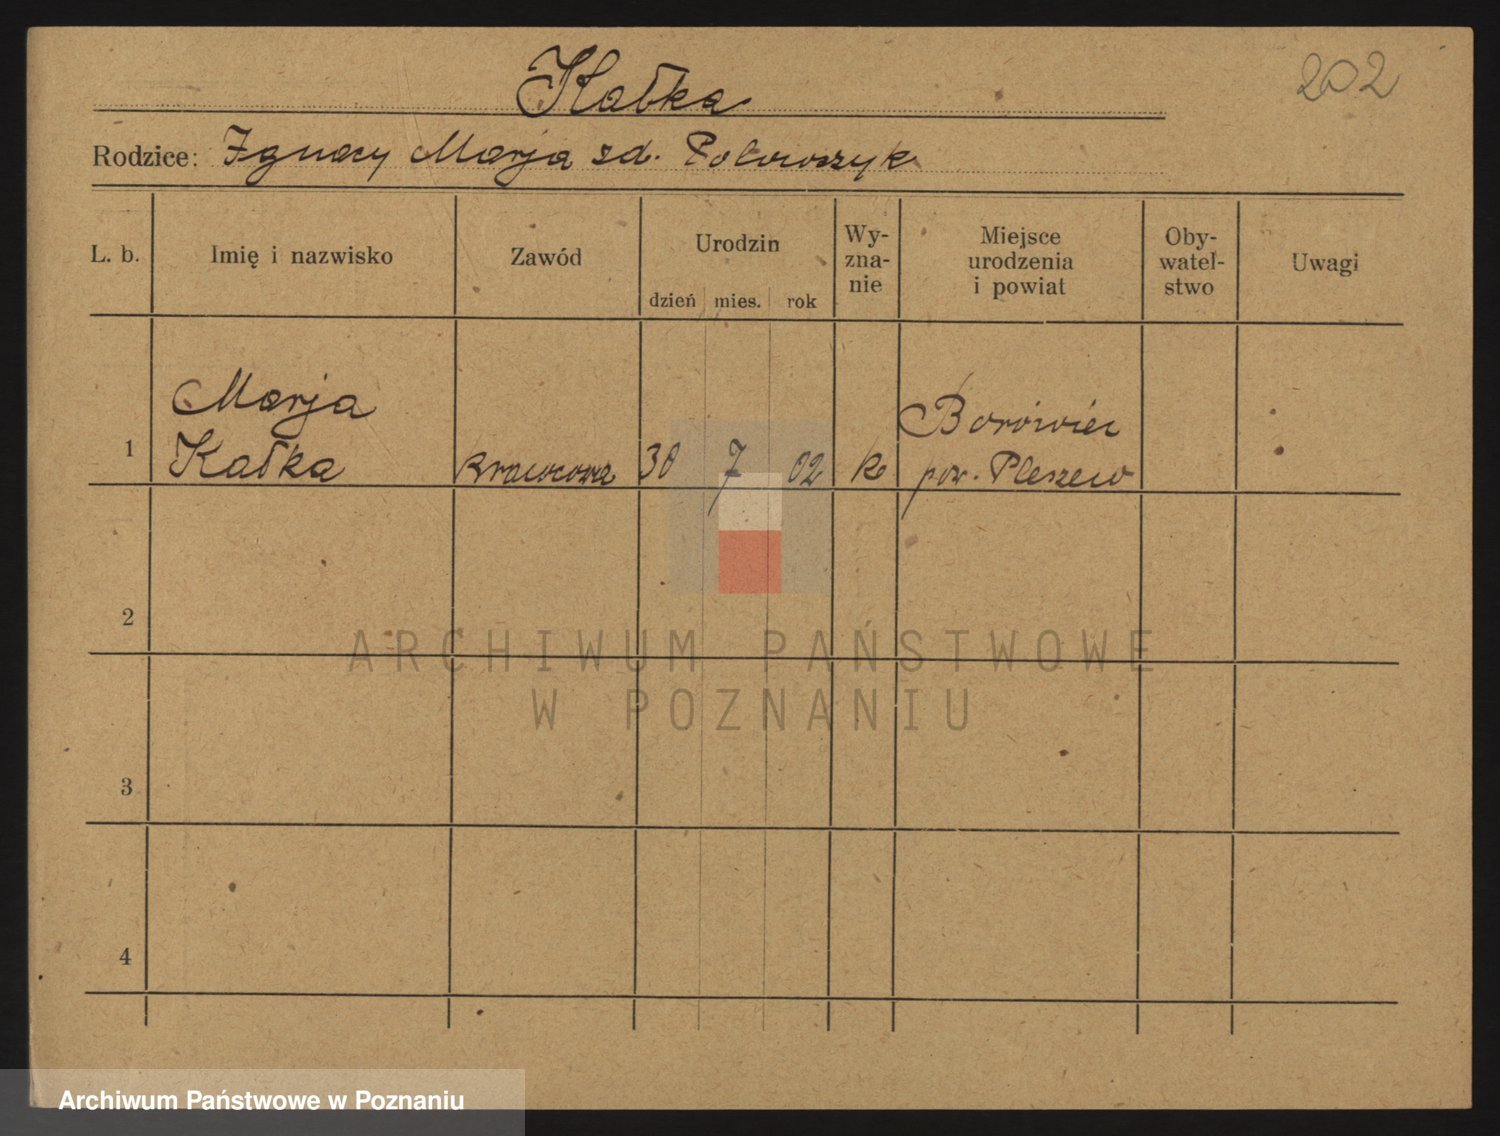 202
Kałka
Rodzice: Ignacy Marja zd.
L. b.
Imię i nazwisko
Zawód
Urodzin
dzień mies. rok
Wy-
zna-
nie
Miejsce
urodzenia
i powiat
Oby-
watel-
stwo
Uwagi
1
Marja
Kałka
krawcowa
30 7 02
k
Borówiec
pow. Pleszew
2
3
4
ARCHIWUM PAŃSTWOWE
W POZNANIU
Archiwum Państwowe w Poznaniu